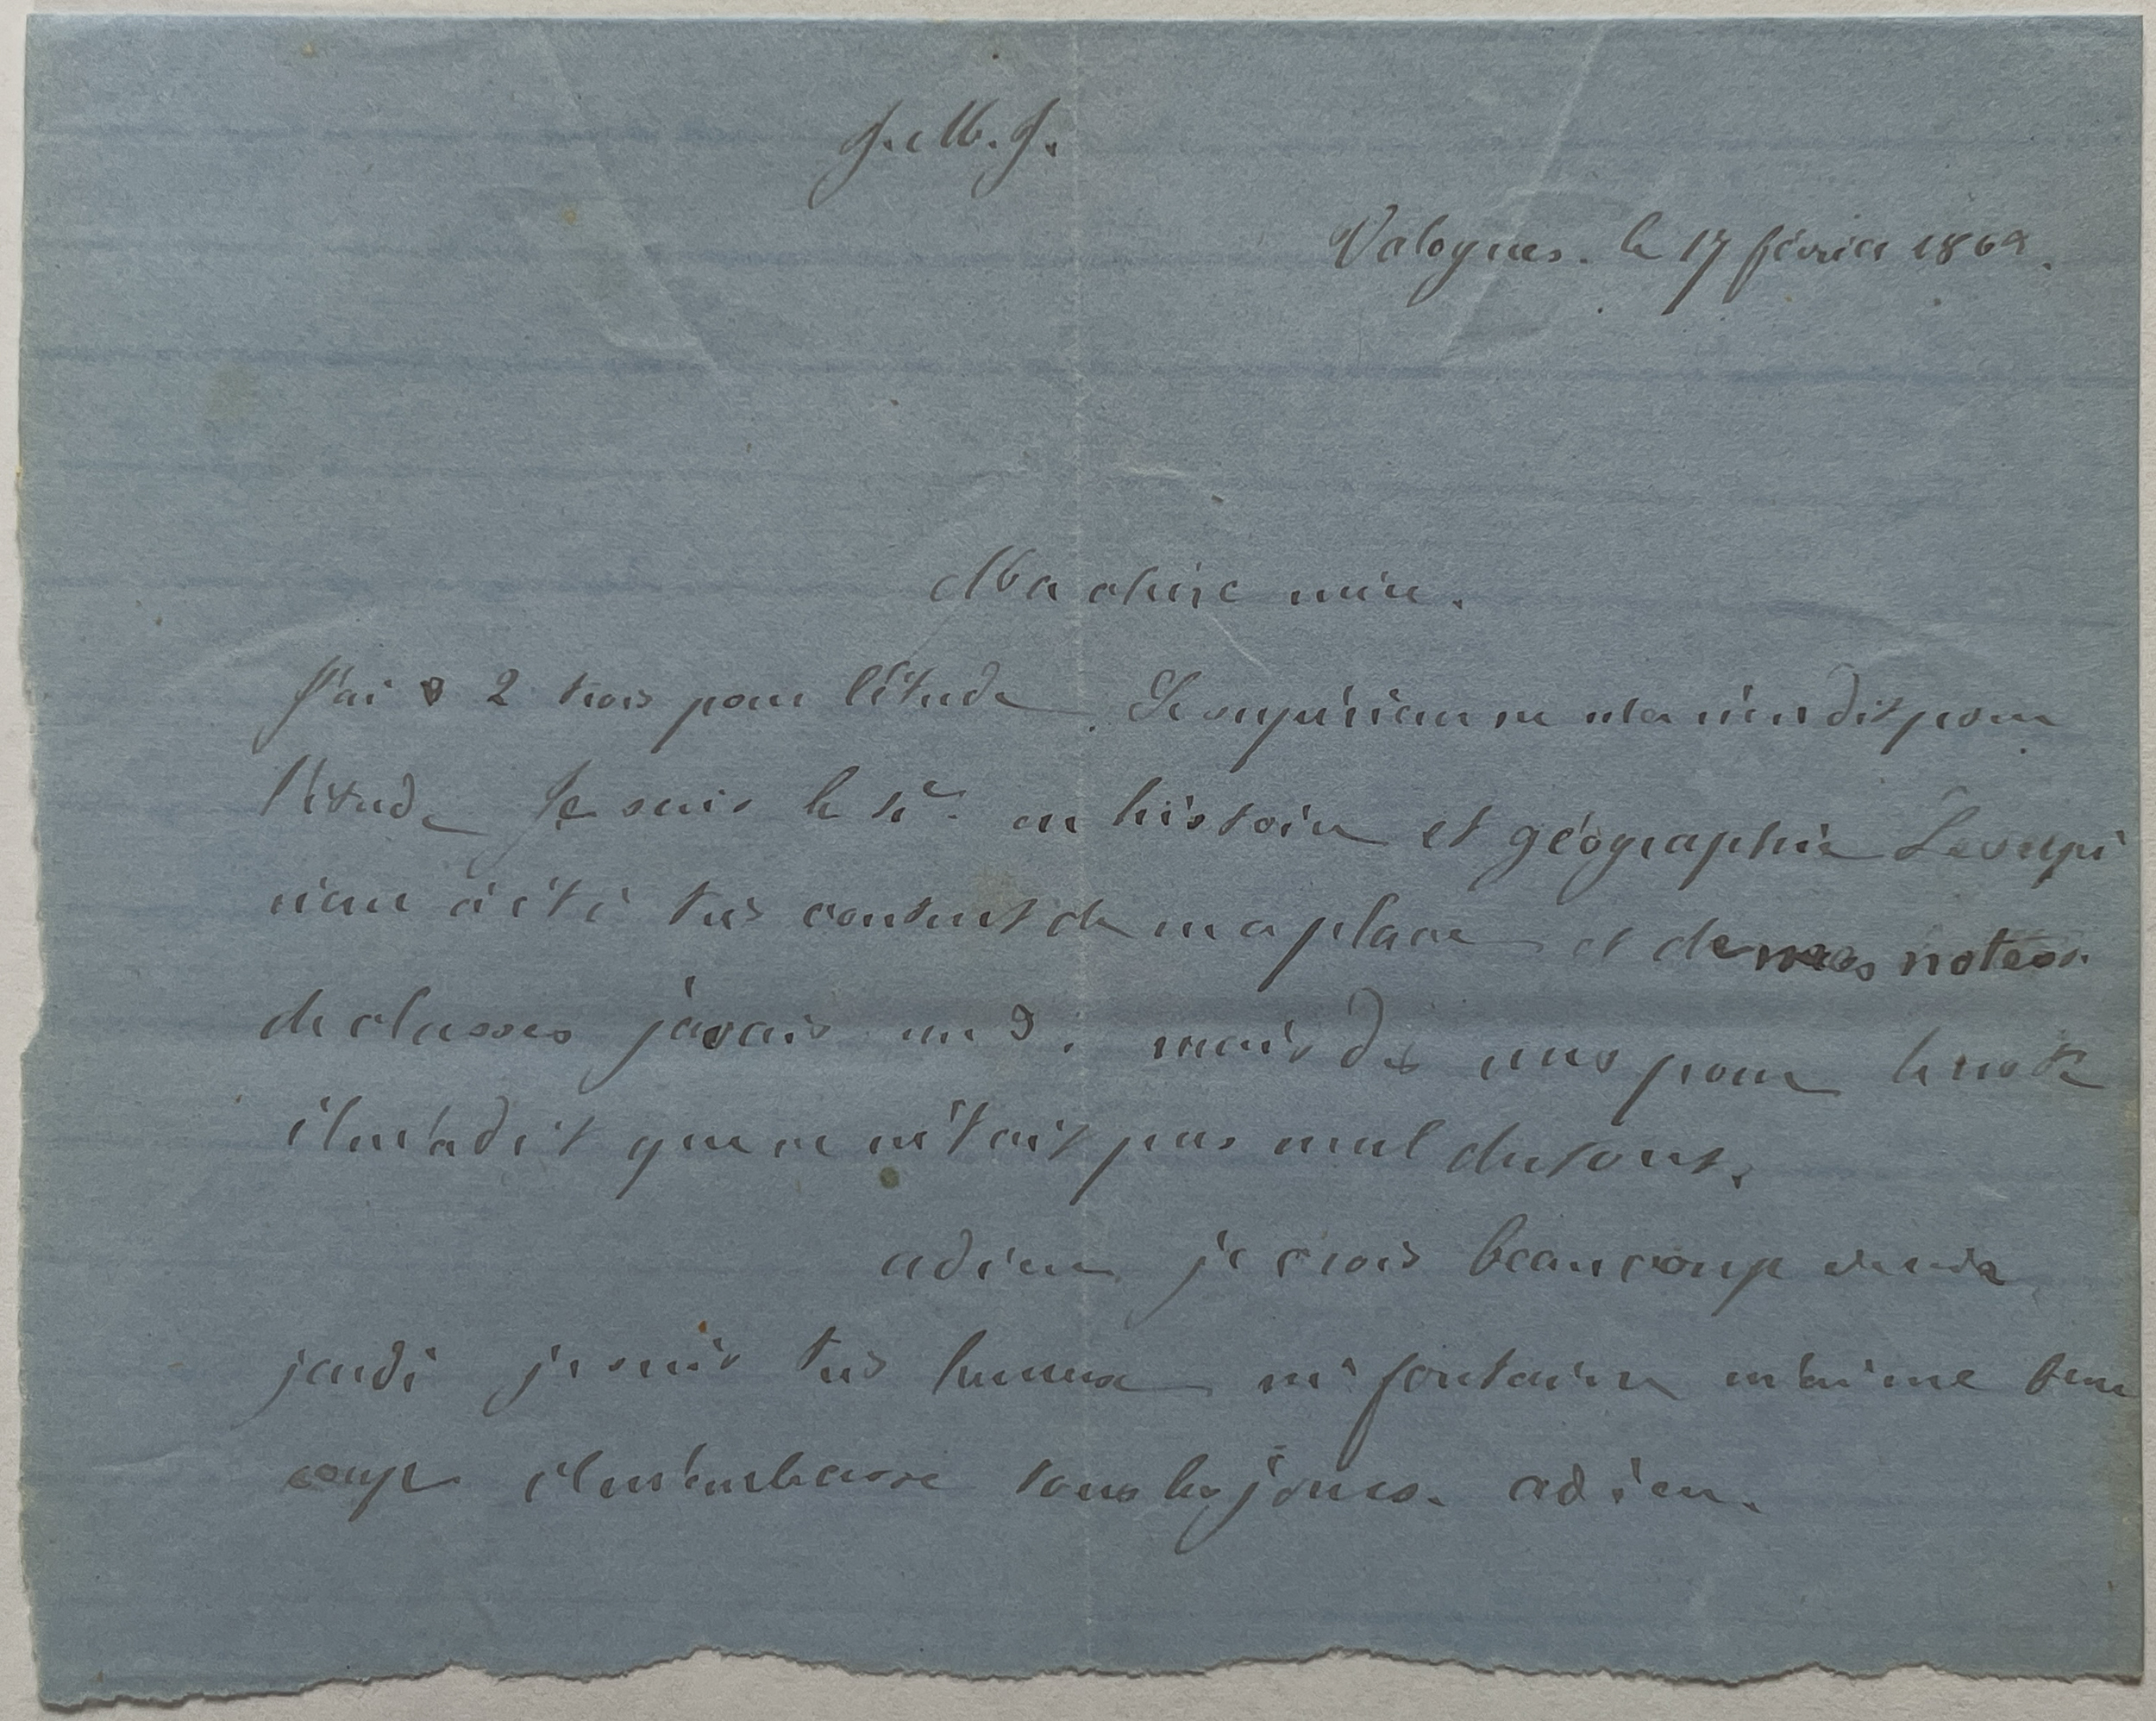 J. M. J.
Valognes. le 17 février 186
Ma chère mère.
J'ai 2 trois pour l'étude. Le supérieur ne m'a rien dit pour
l'étude Je suis le en histoire et géographie Le supé
rieur à été très content de ma place et de mes notes
de classes javais un 3. mais des uns pour le reste
il m'a dit que ce n'était pas mal du tout.
adieu je crois beaucoup
jeudi je suis très heureux mr fontaine m'aime beau
coup il m'embrasse tous les jours. adieu.